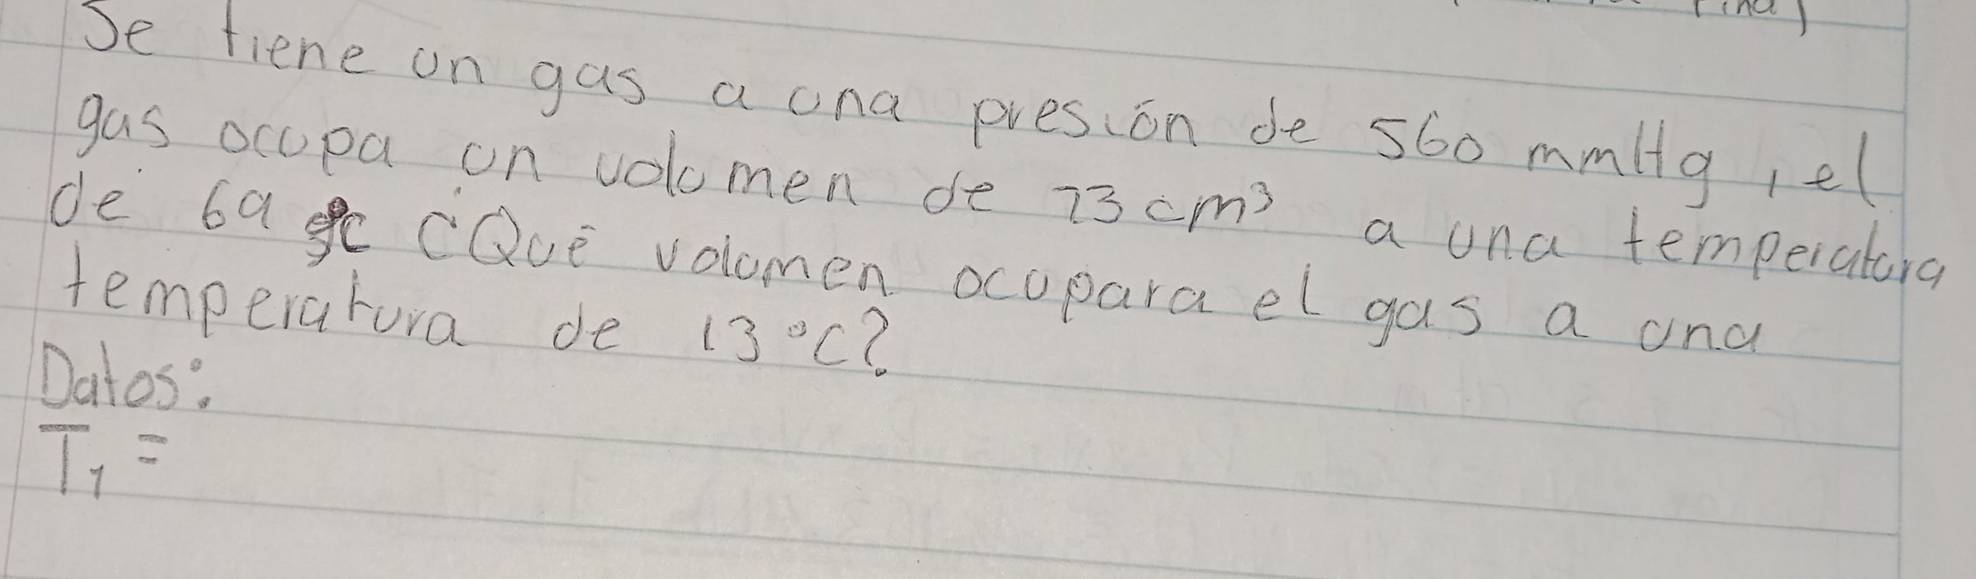 Se tiene un gas a una presión de 560 mmHg, el
gas ocupa un volumen de 23 cm³ a una temperatura
de 69 °C ¿Qué volumen ocupara el gas a una
temperatura de 13 °C?
Datos:
T₁ =